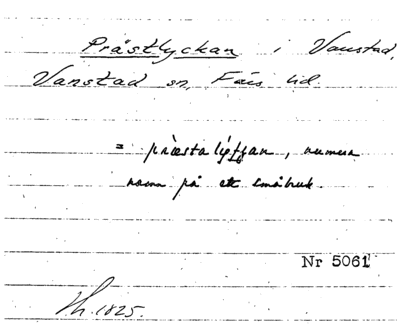 Prästlyckan i Vanstad,
Vanstad sn, Färs hd.
= præsta lýkkan, numera
namn på ett småbruk.
Nr 5061
Th. 1825.